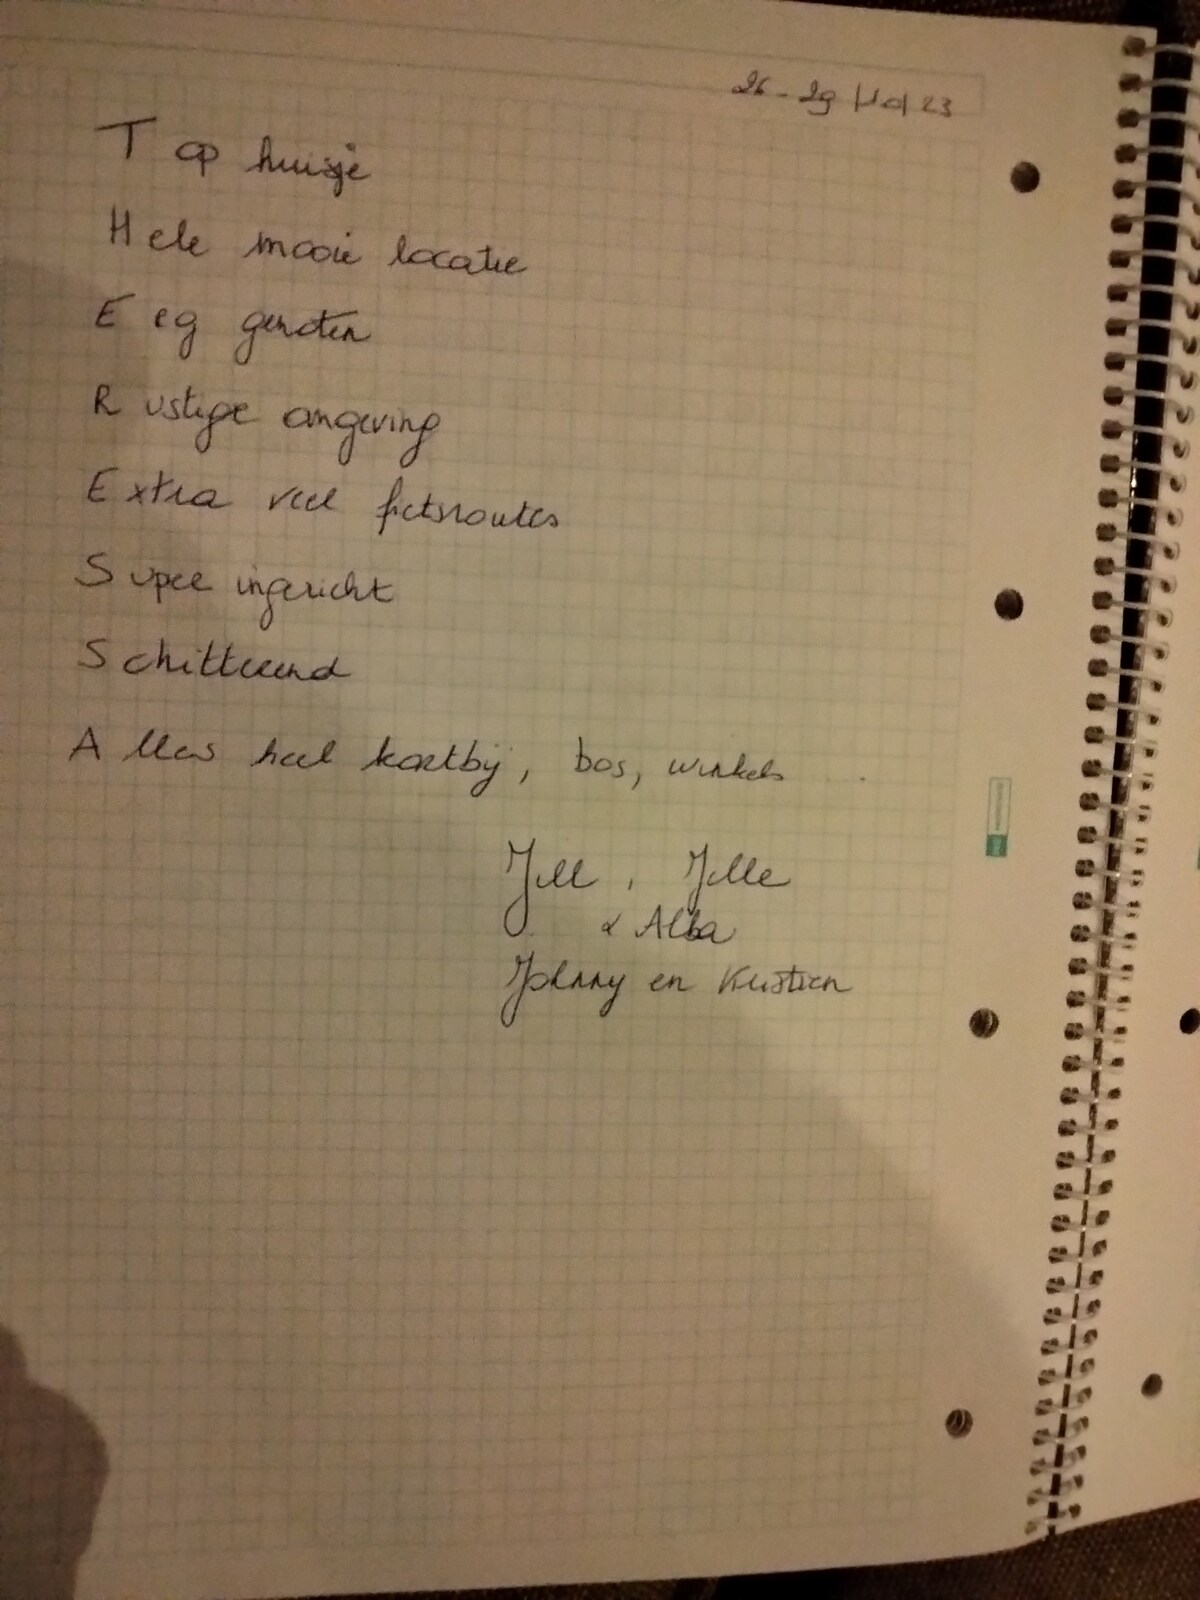 26 - 29 | 10 | 23
Top huisje
Hele mooie locatie
Eeg genoten
Rustige omgeving
Extra veel fietsroutes
Super ingericht
Schitterend
Alles heel kortbij, bos, winkels .
Jill, Jelle
& Alba
Johnny en Kristien